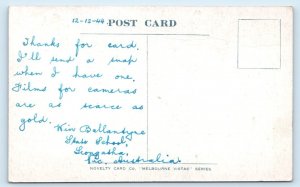 12-12-44
POST CARD
Thanks for card.
I'll send a snap
when I have one.
Films for cameras
are as scarce as
gold.
Win Ballantyne
State School,
Leongatha,
Vic. Australia.
NOVELTY CARD CO. "MELBOURNE VISTAS" SERIES